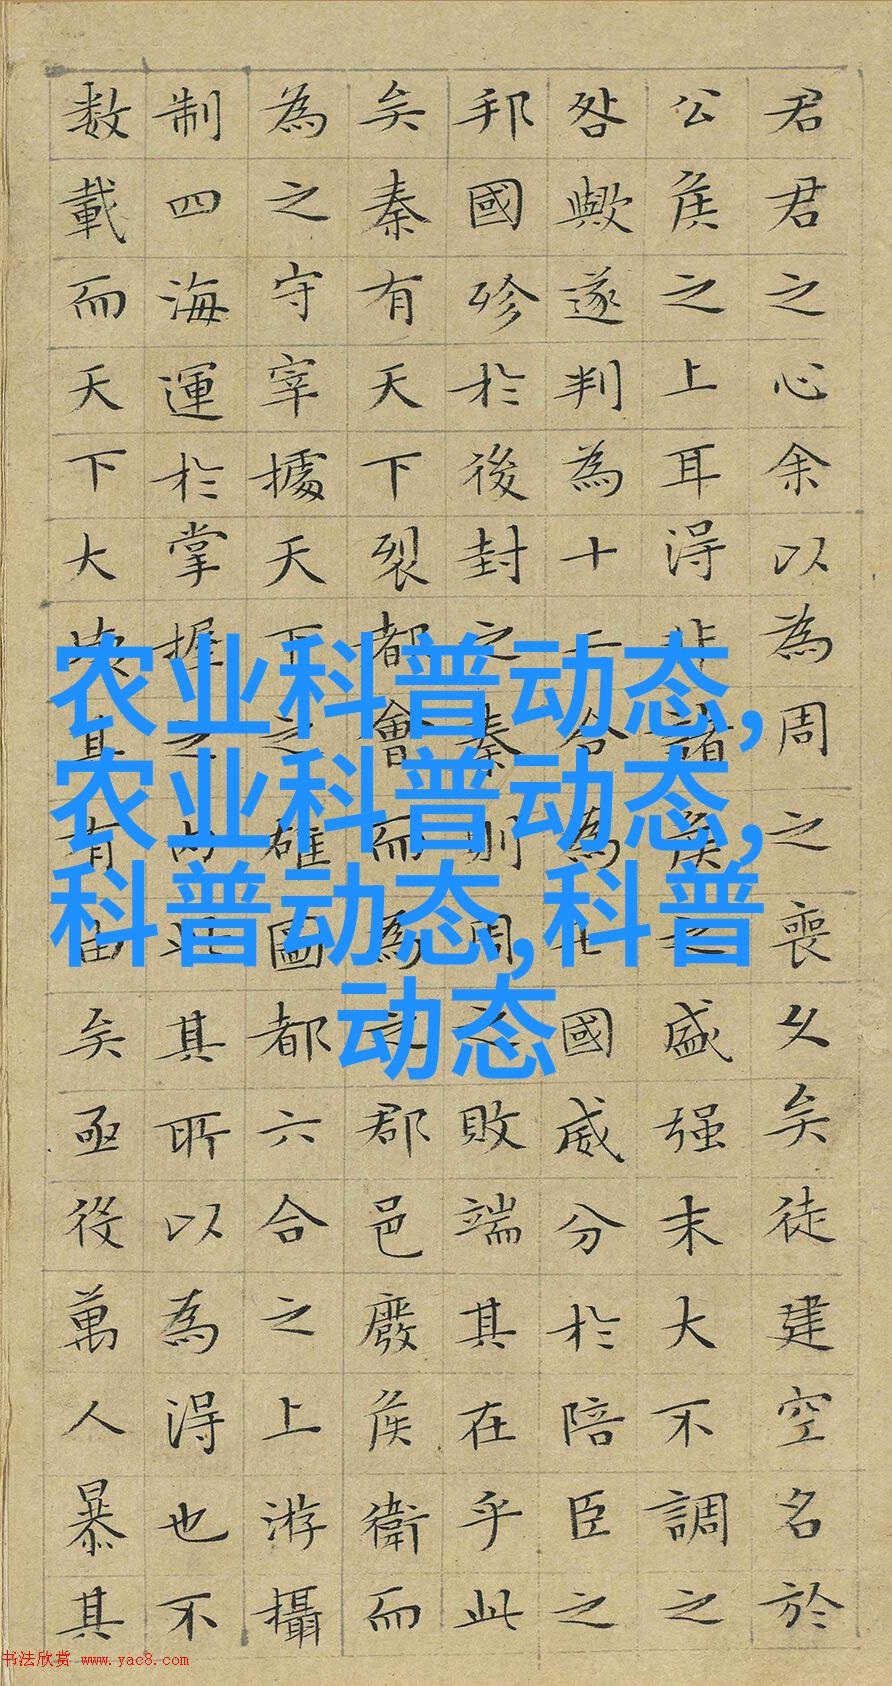 君君之心余以為周之喪久矣徒建空名於
公侯之上耳得非諸侯之盛强末大不調之
咎歟遂判為十二合為七國威分於陪臣之
邦國殄於後封之秦則周之敗端其在乎此
矣秦有天下裂都會而為之郡邑廢侯衛而
為之守宰據天下之雄圖都六合之上游攝
制四海運於掌握之内此其所以為得也不
数載而天下大壞其有由矣亟役萬人暴其
农业科普动态,
农业科普动态,
科普动态,科普
动态
书法欣赏 www.yac8.com